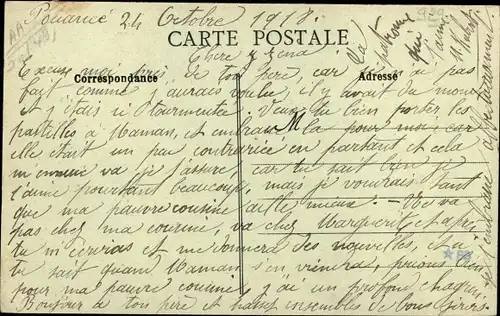 Pouancé 24 Octobre 1918.
CARTE POSTALE
Correspondance
Adresse
Chère Zéna
Excuse moi près de ton père, car je n'ai pas
fait comme j'aurais voulu, il y avait du monde
et j'étais si tourmentée. Veux tu bien porter les
pastilles à Maman, et embrasse la pour moi car
elle était un peu contrariée en partant et cela
m'ennuie va je t'assure, car tu sait bien je
l'aime pourtant beaucoup, mais je voudrais tant
que ma pauvre cousine aille mieux. Ne va
pas chez ma cousine, va chez Marguerite et après
tu m'écriras et me donnera des nouvelles, et
tu sait quand Maman s'en viendra, prions bien
pour ma pauvre cousine, j'ai un profond chagrin.
Bonjour à ton père et baisers ensembles de vous
La
qui t'aime
t'embrasse affectueusement